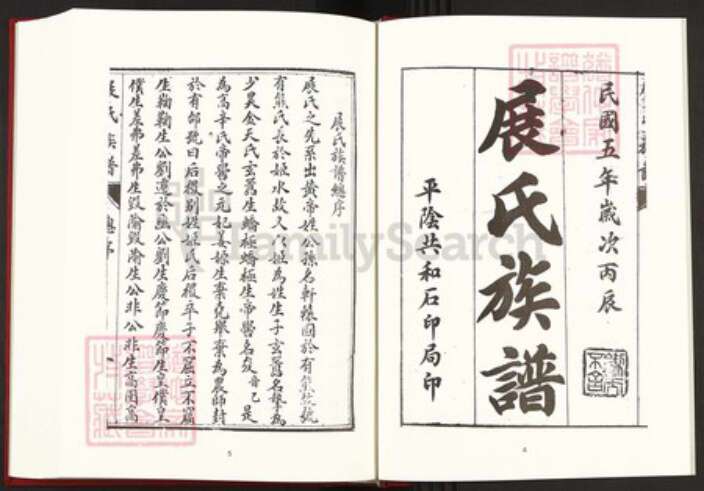 民國五年歲次丙辰
展氏族譜
平陰共和石印局印
4
展氏族譜總序
展氏之先系出黃帝姓公孫名軒轅國於有熊故號
有熊氏長於姬水故又以姬為姓生子玄囂名摯為
少昊金天氏玄囂生蟜極蟜極生帝嚳名夋音已是
為高辛氏帝嚳之元妃姜嫄生棄堯舉棄為農師封
於有邰號曰后稷別姓姬氏后稷卒子不窋立不窋
生鞠鞠生公劉遷於豳公劉生慶節慶節生皇僕皇
僕生差弗差弗生毀隃毀隃生公非公非生高圉高
展氏族譜
總序
5
FamilySearch